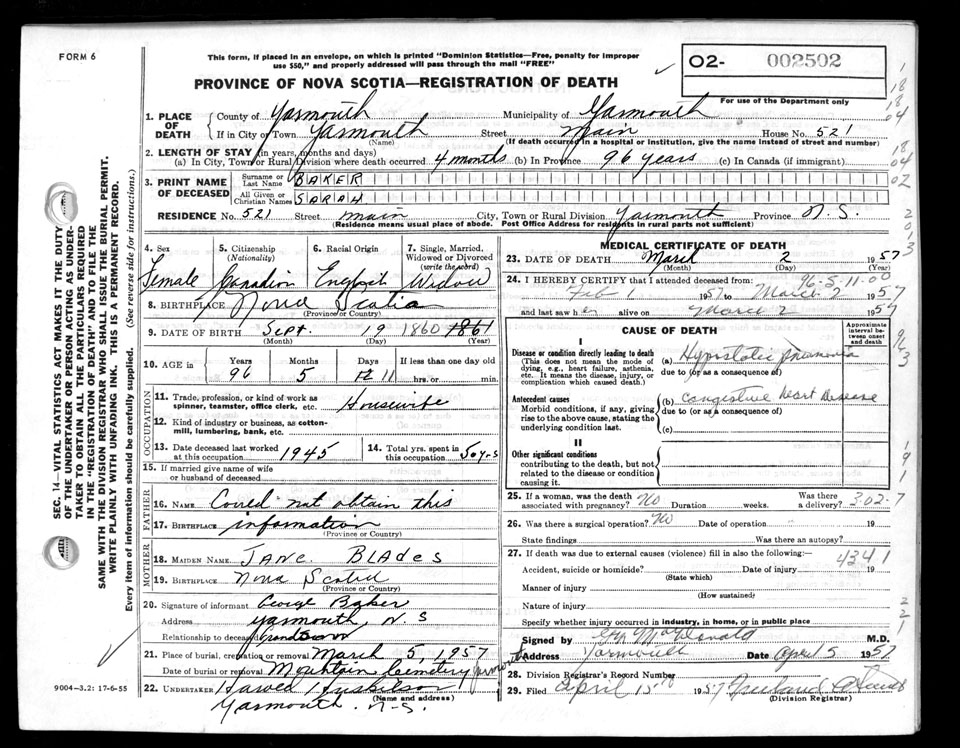 FORM 6
This form, if placed in an envelope, on which is printed "Dominion Statistics—Free, penalty for improper
use $50," and properly addressed will pass through the mail "FREE"
PROVINCE OF NOVA SCOTIA—REGISTRATION OF DEATH
O2- 002502
For use of the Department only
1. PLACE OF DEATH
County of Yarmouth Municipality of Yarmouth
If in City or Town Yarmouth Street Main House No. 521
(Name) (If death occurred in a hospital or institution, give the name instead of street and number)
2. LENGTH OF STAY (in years, months and days)
(a) In City, Town or Rural Division where death occurred 4 months (b) In Province 96 years (c) In Canada (if immigrant)
3. PRINT NAME OF DECEASED
Surname or Last Name BAKER
All Given or Christian Names SARAH
RESIDENCE No. 521 Street main City, Town or Rural Division Yarmouth Province N.S.
(Residence means usual place of abode. Post Office Address for residents in rural parts not sufficient)
4. Sex 5. Citizenship (Nationality) 6. Racial Origin 7. Single, Married, Widowed or Divorced (write the word)
Female Canadian English Widow
8. BIRTHPLACE Nova Scotia
(Province or Country)
9. DATE OF BIRTH Sept. 19 1860 1861
(Month) (Day) (Year)
10. AGE in Years Months Days If less than one day old
96 5 12 11 hrs. or min.
OCCUPATION
11. Trade, profession, or kind of work as
spinner, teamster, office clerk, etc. Housewife
12. Kind of industry or business, as cotton-
mill, lumbering, bank, etc.
13. Date deceased last worked at this occupation 1945 14. Total yrs. spent in this occupation 50 yrs
15. If married give name of wife
or husband of deceased
FATHER
16. Name Could not obtain this
17. Birthplace information
(Province or Country)
MOTHER
18. Maiden Name JANE BLADES
19. Birthplace Nova Scotia
(Province or Country)
20. Signature of informant George Baker
Address Yarmouth, N.S
Relationship to deceased Grandson
21. Place of burial, cremation or removal March 5, 1957
Date of burial or removal Mountain Cemetery Yarmouth
22. Undertaker
(Name and address)
Yarmouth. N.S.
MEDICAL CERTIFICATE OF DEATH
23. DATE OF DEATH March 2 1957
(Month) (Day) (Year)
96-5-11-00
24. I HEREBY CERTIFY that I attended deceased from:
Feb 1 1957 to March 2 1957
and last saw her alive on March 2 1957
CAUSE OF DEATH
Approximate interval between onset and death
I
Disease or condition directly leading to death (a) Hypostatic pneumonia
(This does not mean the mode of dying, e.g., heart failure, asthenia, etc. It means the disease, injury, or complication which caused death.)
due to (or as a consequence of)
Antecedent causes (b) Congestive Heart Disease
Morbid conditions, if any, giving rise to the above cause, stating the underlying condition last.
due to (or as a consequence of)
(c)
II
Other significant conditions
contributing to the death, but not related to the disease or condition causing it.
25. If a woman, was the death associated with pregnancy? No Duration weeks. Was there a delivery?
302-7
26. Was there a surgical operation? No Date of operation 19
State findings Was there an autopsy?
27. If death was due to external causes (violence) fill in also the following:—
4341
Accident, suicide or homicide? Date of injury 19
(State which)
Manner of injury
(How sustained)
Nature of injury
Specify whether injury occurred in industry, in home, or in public place
Signed by MacDonald M.D.
Address Yarmouth Date April 5 1957
28. Division Registrar's Record Number
29. Filed April 15th 1957
(Division Registrar)
9004—3.2: 17-6-55
SEC. 14—VITAL STATISTICS ACT MAKES IT THE DUTY
OF THE UNDERTAKER OR PERSON ACTING AS UNDER-
TAKER TO OBTAIN ALL THE PARTICULARS REQUIRED
IN THE "REGISTRATION OF DEATH" AND TO FILE THE
SAME WITH THE DIVISION REGISTRAR WHO SHALL ISSUE THE BURIAL PERMIT.
WRITE PLAINLY WITH UNFADING INK. THIS IS A PERMANENT RECORD.
Every item of information should be carefully supplied. (See reverse side for instructions.)